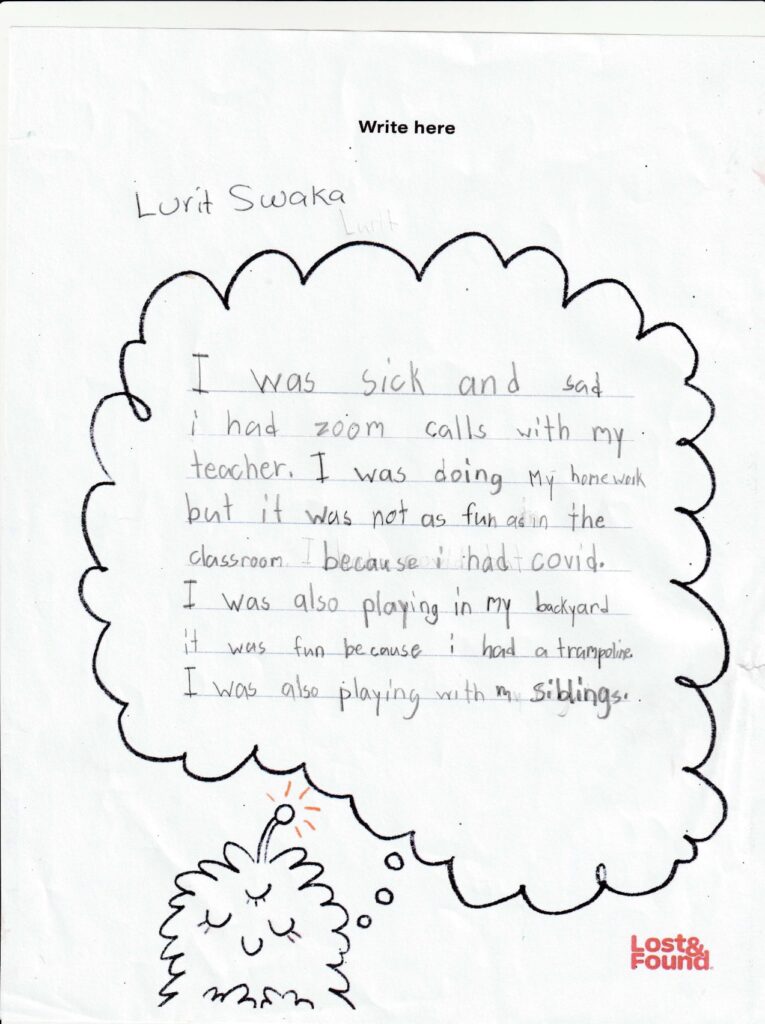 Write here
Lurit Swaka
Lurit
I was sick and sad
i had zoom calls with my
teacher. I was doing My homework
but it was not as fun as in the
classroom because i had covid.
I was also playing in my backyard
it was fun because i had a trampoline.
I was also playing with my siblings.
Lost&
Found